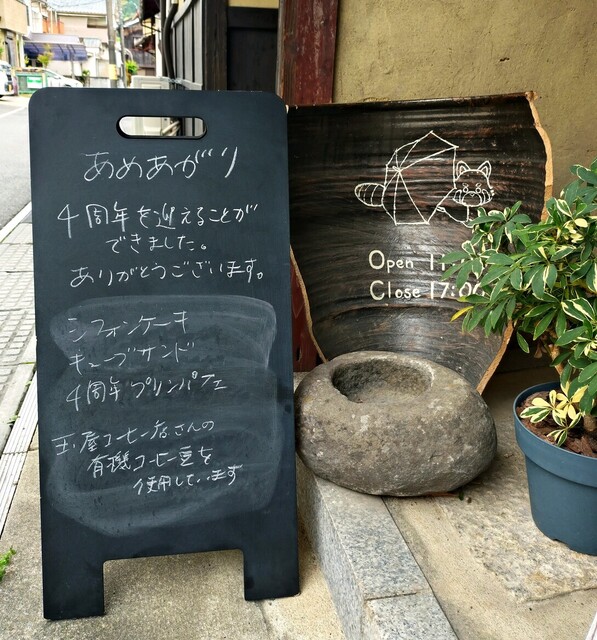 あめあがり
4周年を迎えることが
できました。
ありがとうございます。
シフォンケーキ
キューブサンド
4周年プリンパフェ
玉屋コーヒー店さんの
有機コーヒー豆を
使用しています
Open
Close 17:00